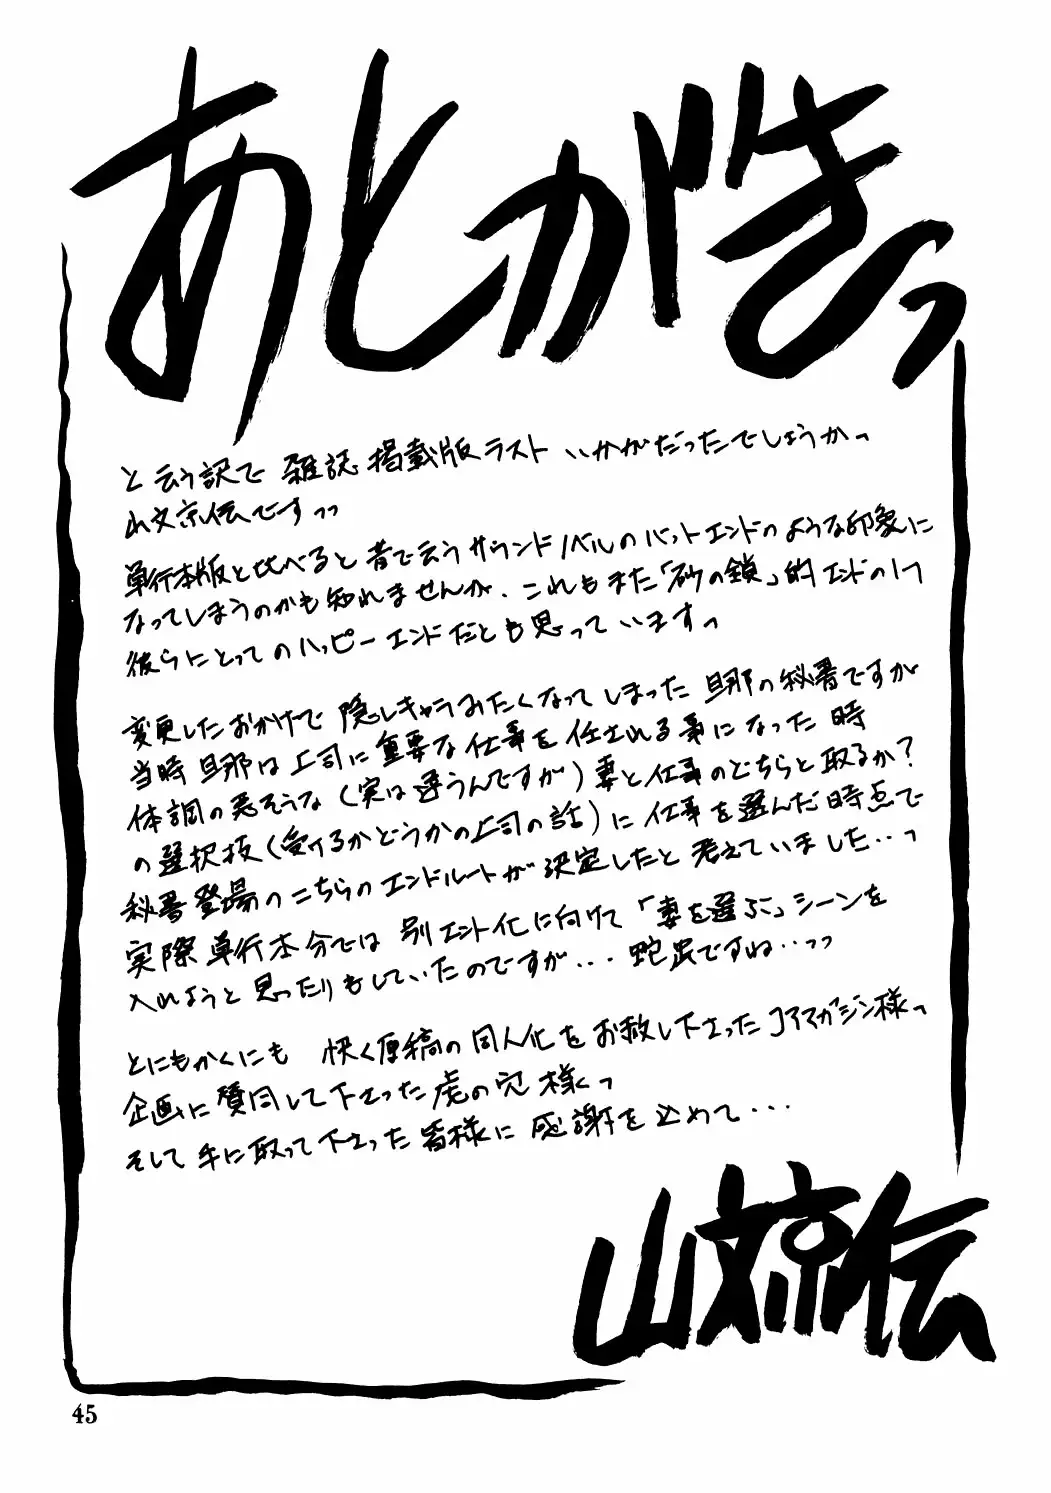 あとがきっ
と云う訳で 雑誌掲載版ラスト いかがだったでしょうかっ
山文京伝ですっっ
単行本版と比べると昔で云うサウンドノベルのバットエンドのような印象に
なってしまうのかも知れませんが、これもまた「砂の鎖」的エンドの1つ
彼らにとってのハッピーエンドだとも思っていますっ
変更したおかげで 隠しキャラみたくなってしまった旦那の秘書ですが
当時旦那は上司に重要な仕事を任される事になった時
体調の悪そうな(実は違うんですが)妻と仕事のどちらを取るか?
の選択枝(受けるかどうかの上司の話)に仕事を選んだ時点で
秘書登場のこちらのエンドルートが決定したと考えていました‥っ
実際単行本分では 別エンド化に向けて「妻を選ぶ」シーンを
入れようと思ったりもしていたのですが... 蛇足ですね‥っっ
とにもかくにも 快く原稿の同人化をお赦し下さったコアマガジン様っ
企画に賛同して下さった虎の穴様くっ
そして手に取って下さった皆様に感謝を込めて...
山文京伝
45